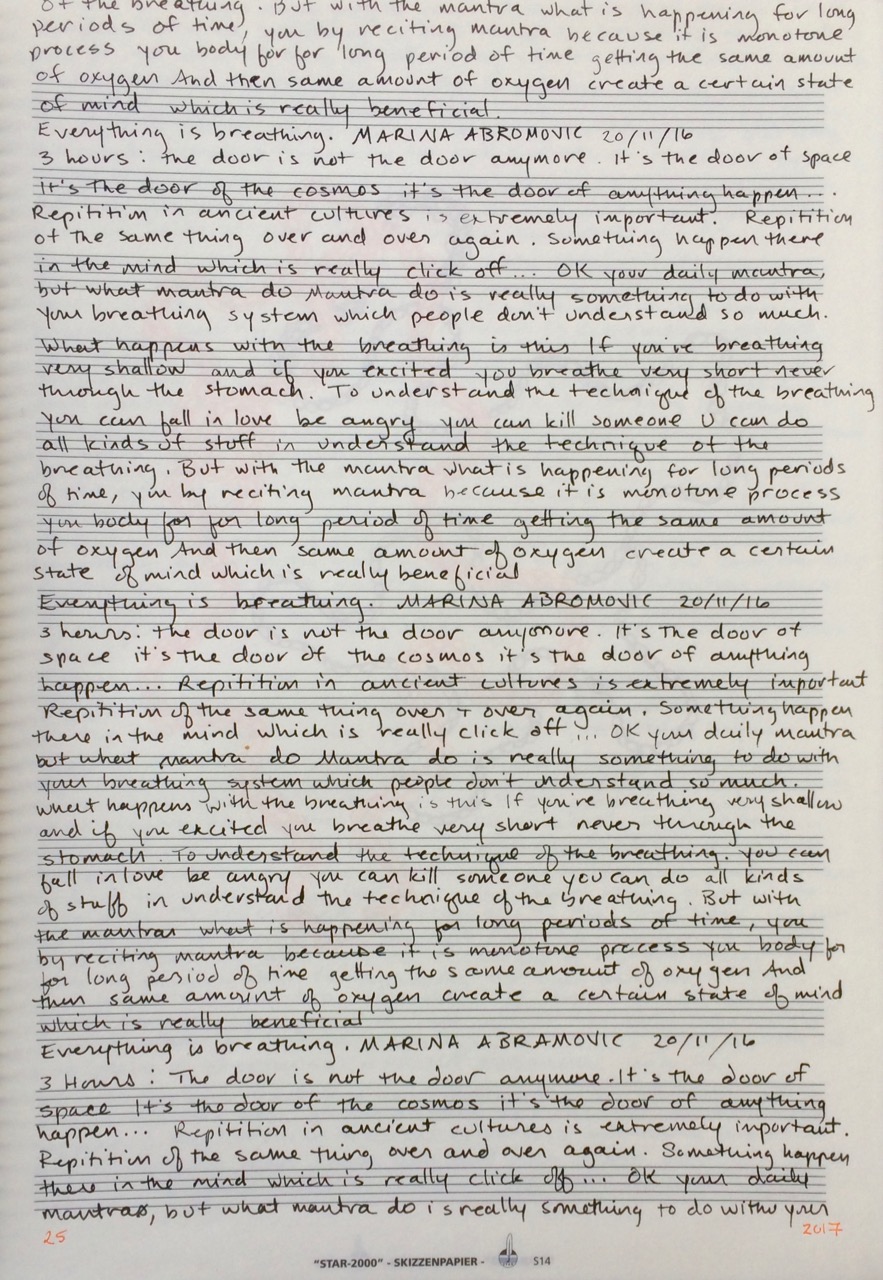 of the breathing. But with the mantra what is happening for long
periods of time, you by reciting mantra because it is monotone
process you body for for long period of time getting the same amount
of oxygen And then same amount of oxygen create a certain state
of mind which is really beneficial.
Everything is breathing. MARINA ABROMOVIC 20/11/16
3 hours: the door is not the door anymore. It's the door of space
it's the door of the cosmos it's the door of anything happen...
Repitition in ancient cultures is extremely important. Repitition
of the same thing over and over again. Something happen there
in the mind which is really click off... OK your daily mantra,
but what mantra do Mantra do is really something to do with
your breathing system which people don't understand so much.
What happens with the breathing is this If you're breathing
very shallow and if you excited you breathe very short never
through the stomach. To understand the technique of the breathing
you can fall in love be angry you can kill someone U can do
all kinds of stuff in understand the technique of the
breathing. But with the mantra what is happening for long periods
of time, you by reciting mantra because it is monotone process
you body for for long period of time getting the same amount
of oxygen And then same amount of oxygen create a certain
state of mind which is really beneficial
Everything is breathing. MARINA ABROMOVIC 20/11/16
3 hours: the door is not the door anymore. It's the door of
space it's the door of the cosmos it's the door of anything
happen... Repitition in ancient cultures is extremely important
Repitition of the same thing over + over again. Something happen
there in the mind which is really click off... OK your daily mantra
but what mantra do Mantra do is really something to do with
your breathing system which people don't understand so much.
what happens with the breathing is this If you're breathing very shallow
and if you excited you breathe very short never through the
stomach. To understand the technique of the breathing. you can
fall in love be angry you can kill someone you can do all kinds
of stuff in understand the technique of the breathing. But with
the mantras what is happening for long periods of time, you
by reciting mantra because it is monotone process you body for
for long period of time getting the same amount of oxygen And
then same amount of oxygen create a certain state of mind
which is really beneficial
Everything is breathing. MARINA ABRAMOVIC 20/11/16
3 Hours: The door is not the door anymore. It's the door of
space It's the door of the cosmos it's the door of anything
happen... Repitition in ancient cultures is extremely important.
Repitition of the same thing over and over again. Something happen
there in the mind which is really click off... OK your daily
mantras, but what mantra do is really something to do with your
25 2017
"STAR-2000" - SKIZZENPAPIER - S14